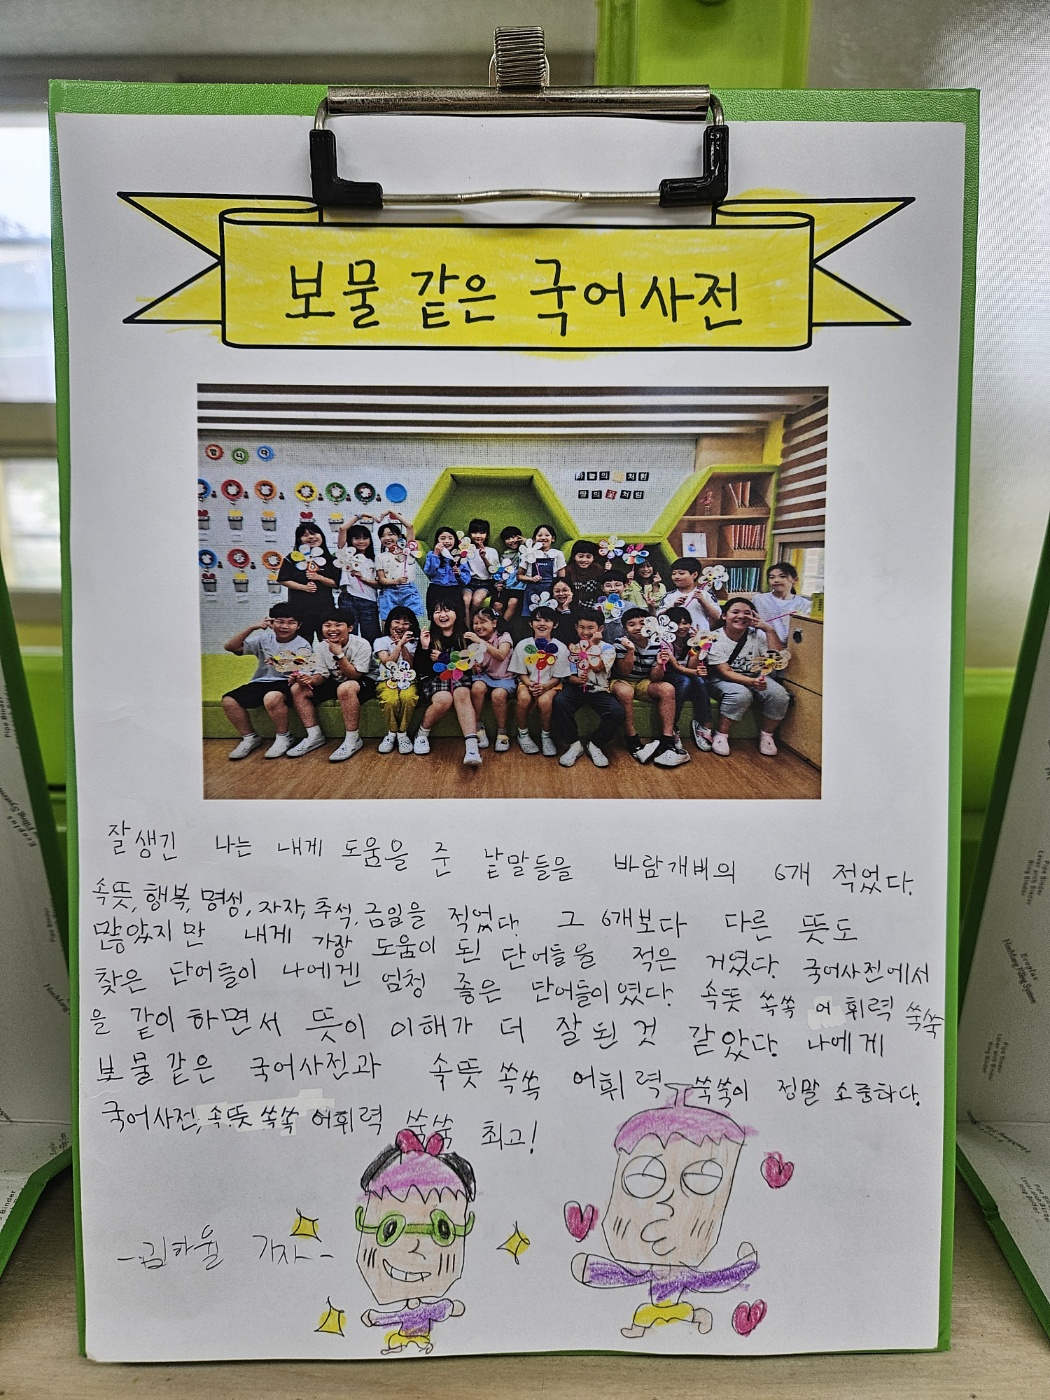 보물 같은 국어사전
잘생긴 나는 내게 도움을 준 낱말들을 바람개비의 6개 적었다.
속뜻, 행복, 명성, 자자, 추석, 금일을 적었다. 그 6개보다 다른 뜻도
많았지만 내게 가장 도움이 된 단어들을 적은 거였다. 국어사전에서
찾은 단어들이 나에겐 엄청 좋은 단어들이였다. 속뜻 쏙쏙 어휘력 쑥쑥
을 같이 하면서 뜻이 이해가 더 잘 된 것 같았다. 나에게
보물 같은 국어사전과 속뜻 쏙쏙 어휘력 쑥쑥이 정말 소중하다.
국어사전, 속뜻 쏙쏙 어휘력 쑥쑥 최고!
기자-